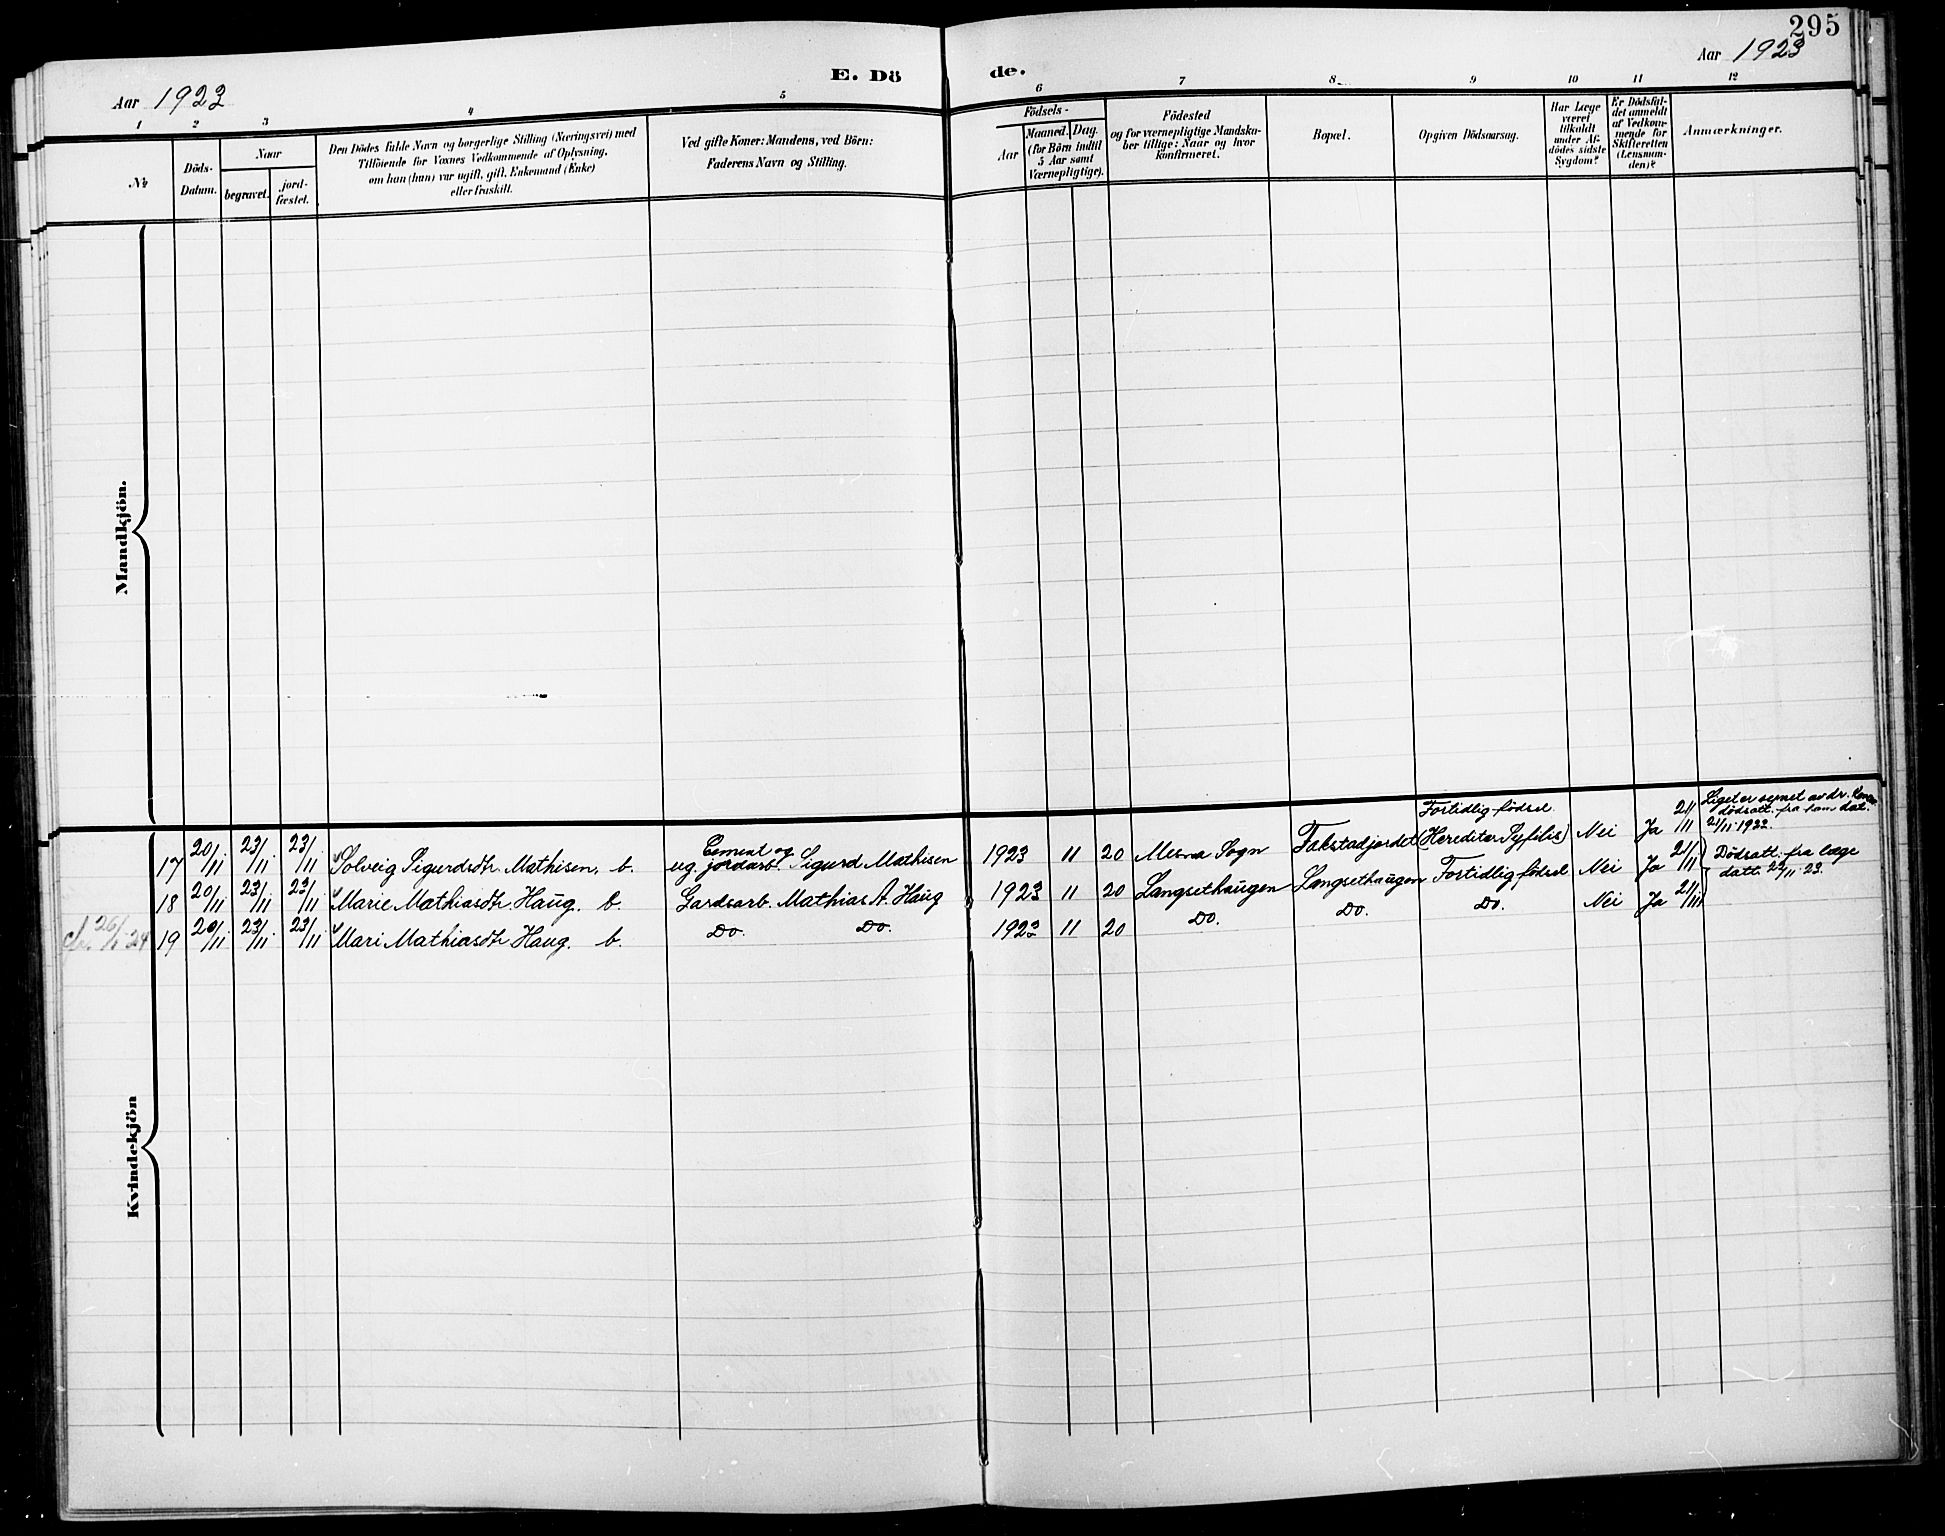 295
Aar 1923
E. Dö
de.
Aar 1923
1 2 3 4 5 6 7 8 9 10 11 12
No
Döds-
Datum.
Naar
begravet.
jord-
fæstet.
Den Dödes fulde Navn og borgerlige Stilling (Næringsvei) med
Tilföiende for Voxnes Vedkommende af Oplysning,
om han (hun) var ugift, gift, Enkemand (Enke)
eller fraskilt.
Ved gifte Koner: Mandens, ved Börn:
Faderens Navn og Stilling.
Födsels-
Aar
Maaned. Dag.
(for Börn indtil
5 Aar samt
Værnepligtige).
Födested
og for værnepligtige Mandska-
ber tillige: Naar og hvor
konfirmeret.
Bopæl.
Opgiven Dödsaarsag.
Har Læge
været
tilkaldt
under Af-
dödes sidste
Sygdom?
Er Dödsfal-
det anmeldt
af Vedkom-
mende for
Skifteretten
(Lensman-
den)?
Anmærkninger.
Mandkjön.
Kvindekjön
17 20/11 23/11 23/11 Solveig Sigurdsdtr. Mathisen. b. Cement og ug. jordarb. Sigurd Mathisen 1923 11 20 Mesna Sogn Takstadjordet Fortidlig fødsel. (Hereditær Syfilis) Nei Ja 21/11
Liget er synet av dr.
dødsatt. fra ham dat.
21/11 1923.
18 20/11 23/11 23/11 Marie Mathiasdtr Haug. b. Gardsarb. Mathias A. Haug 1923 11 20 Langsethaugen Langsethaugen Fortidlig fødsel Nei Ja 21/11
Dødsatt. fra læge
datt. 22/11 23.
26/1 24 19 20/11 23/11 23/11 Mari Mathiasdtr Haug. b. Do. Do. 1923 11 20 Do. Do. Do. Nei Ja 21/11